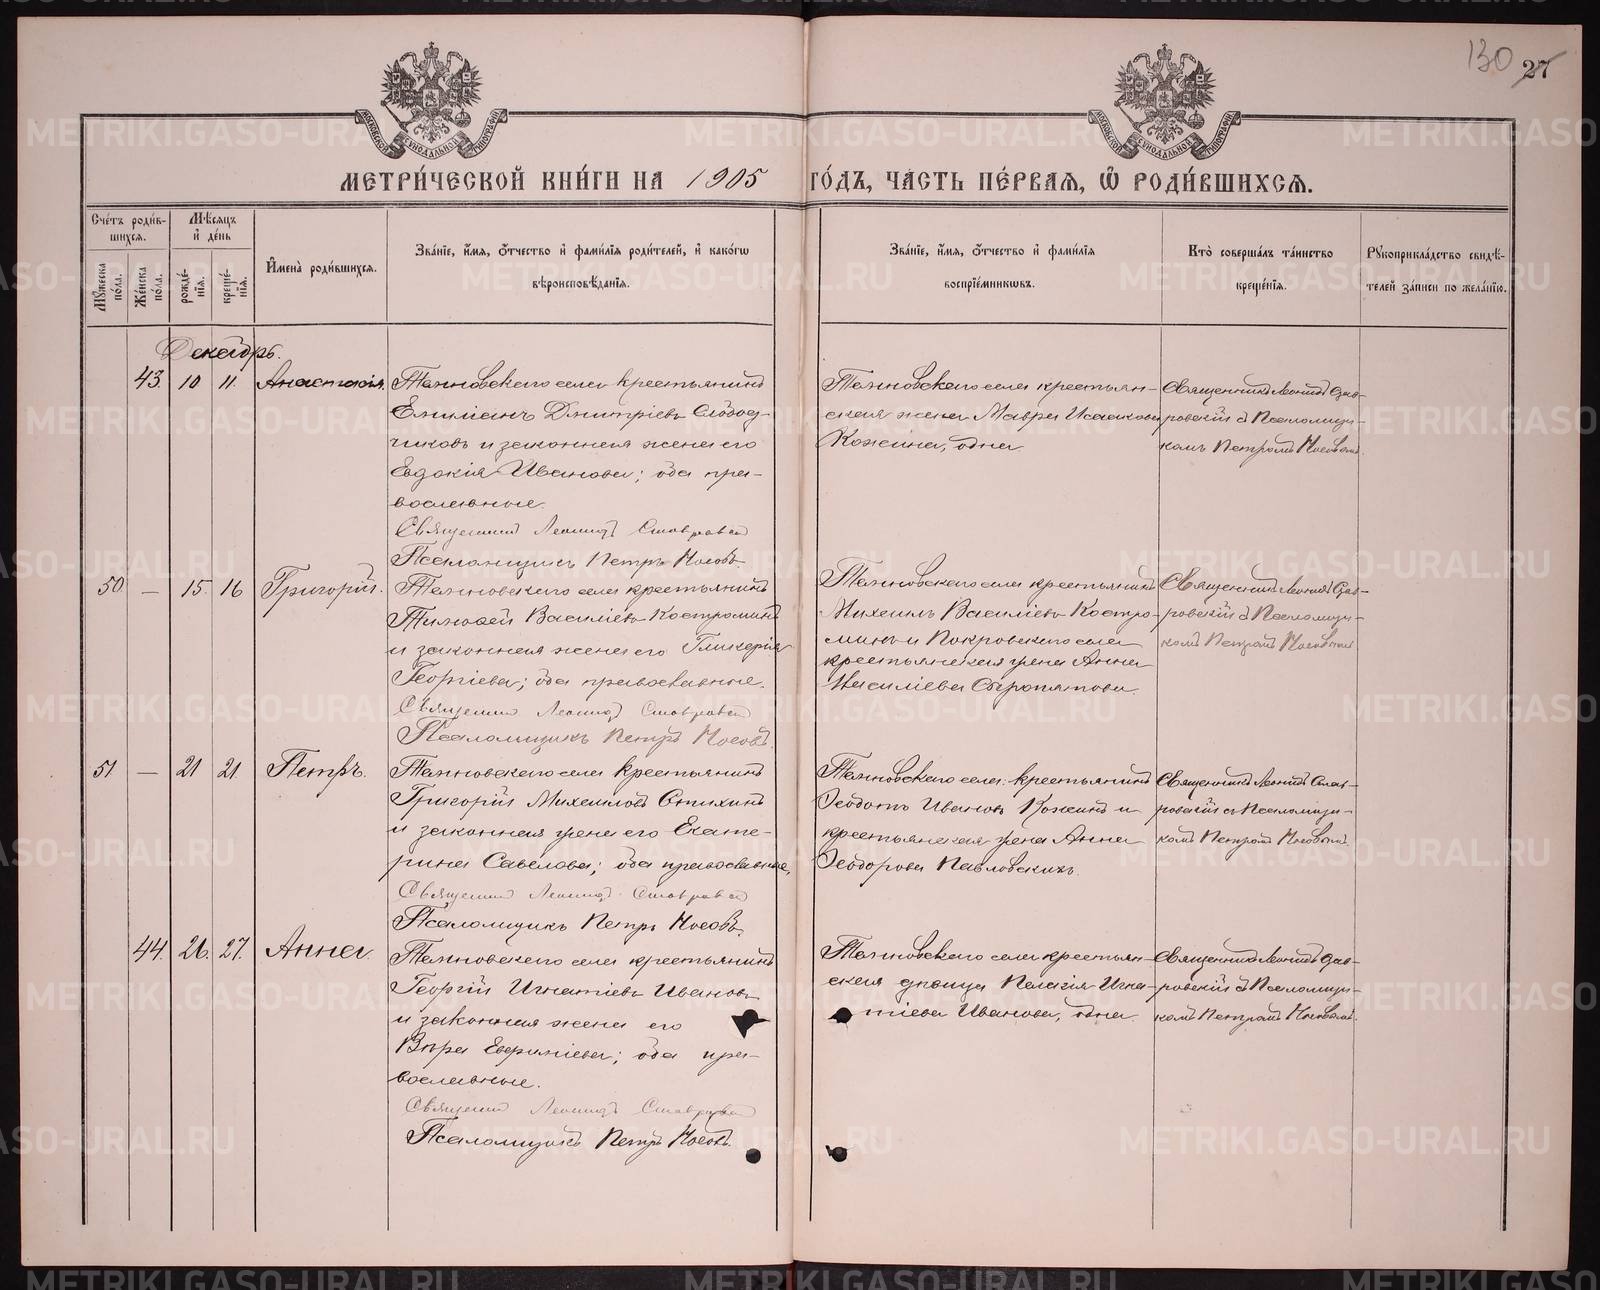 130 27
МЕТРИ́ЧЕСКОЙ КНИ́ГИ НА 1905 ГО́ДЪ, ЧА́СТЬ ПЕ́РВАЯ, Ѡ҆ РОДИ́ВШИХСЯ.
Сче́тъ роди́в-
шихся.
Мѣ́сяцъ
и҆ де́нь
И҆мена̀ роди́вшихся.
Зва́нїе, и҆́мя, ѻ҆́тчество и҆ фами́лїя роди́телей, и҆ како́гѡ
вѣроисповѣ́данїя.
Зва́нїе, и҆́мя, ѻ҆́тчество и҆ фами́лїя
воспрїе́мникѡвъ.
Кто̀ соверша́лъ та́инство
креще́нїя.
Рꙋкоприкла́дство свидѣ́-
телей за́писи по жела́нїю.
Мꙋ́жеска по́ла.
Же́нска по́ла.
рожде́-
нїя.
креще́-
нїя.
Декабрь.
43. 10 11. Анастасія.
Таиновскаго села крестьянинъ
Емиліанъ Дмитріевъ Слобод-
чиковъ и законная жена его
Евдокія Иванова; оба пра-
вославные.
Священникъ Леонидъ Ставровскій
Псаломщикъ Петръ Носовъ
Таиновскаго села крестьян-
ская жена Мавра Исаакова
Кожина, одна
Священникъ Леонидъ Став-
ровскій съ Псаломщи-
комъ Петромъ Носовымъ.
50 — 15. 16 Григорій.
Таиновскаго села крестьянинъ
Тимофей Васильевъ Костроминъ
и законная жена его Гликерія
Георгіева; оба православные.
Священникъ Леонидъ Ставровскій
Псаломщикъ Петръ Носовъ.
Таиновскаго села крестьянинъ
Михаилъ Васильевъ Костро-
минъ и Покровскаго села
крестьянская жена Анна
Васильева Сыропятова.
Священникъ Леонидъ Став-
ровскій съ Псаломщи-
комъ Петромъ Носовымъ
51 — 21 21. Петръ.
Таиновскаго села крестьянинъ
Григорій Михаиловъ Стихинъ
и законная жена его Екате-
рина Савелова; оба православные.
Священникъ Леонидъ Ставровскій
Псаломщикъ Петръ Носовъ.
Таиновскаго села крестьянинъ
Ѳеодотъ Ивановъ Кожинъ и
крестьянская жена Анна
Ѳеодорова Павловскихъ.
Священникъ Леонидъ Став-
ровскій съ Псаломщи-
комъ Петромъ Носовымъ.
44. 26. 27. Анна.
Таиновскаго села крестьянинъ
Георгій Игнатіевъ Ивановъ
и законная жена его
Вѣра Евфиміева; оба пра-
вославные.
Священникъ Леонидъ Ставровскій
Псаломщикъ Петръ Носовъ.
Таиновскаго села крестьян-
ская дѣвица Пелагія Игна-
тіева Иванова, одна.
Священникъ Леонидъ Став-
ровскій съ Псаломщи-
комъ Петромъ Носовымъ.
METRIKI.GASO-URAL.RU